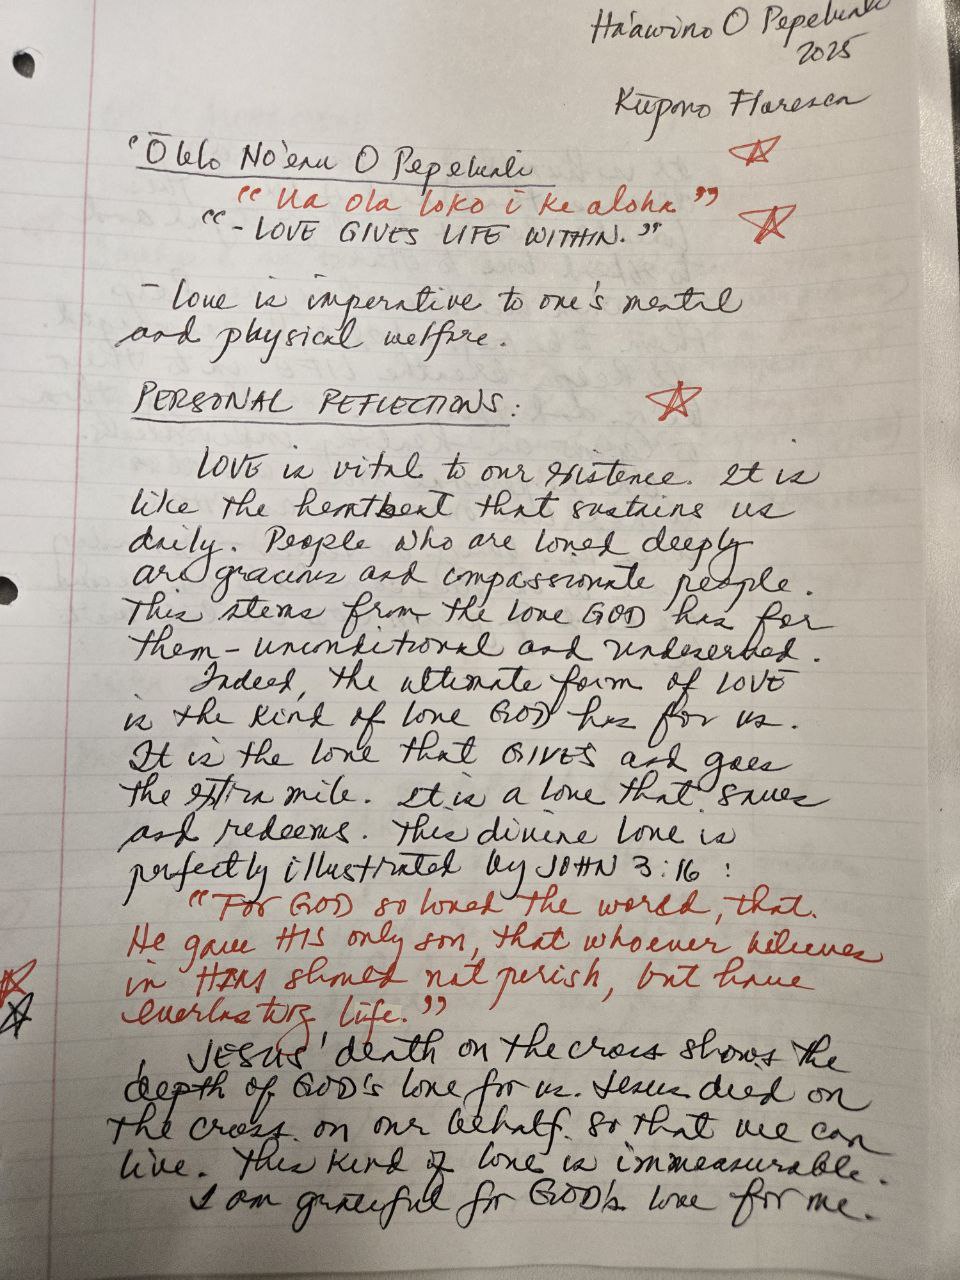 Ha'awina O Pepeluali
2025
Kūpono Floresca
"Ōlelo No'eau O Pepeluali
"Ua ola loko i ke aloha"
"- LOVE GIVES LIFE WITHIN."
- Love is imperative to one's mental
and physical welfare.
PERSONAL REFLECTIONS:
LOVE is vital to our existence. It is
like the heartbeat that sustains us
daily. People who are loved deeply
are gracious and compassionate people.
This stems from the love GOD has for
them - unconditional and undeserved.
Indeed, the ultimate form of LOVE
is the kind of love GOD has for us.
It is the love that GIVES and goes
the extra mile. It is a love that saves
and redeems. This divine love is
perfectly illustrated by JOHN 3:16 :
"For GOD so loved the world, that
He gave HIS only son, that whoever believes
in HIM should not perish, but have
everlasting life."
JESUS' death on the cross shows the
depth of GOD's love for us. Jesus died on
the cross on our behalf so that we can
live. This kind of love is immeasurable.
I am grateful for GOD's love for me.